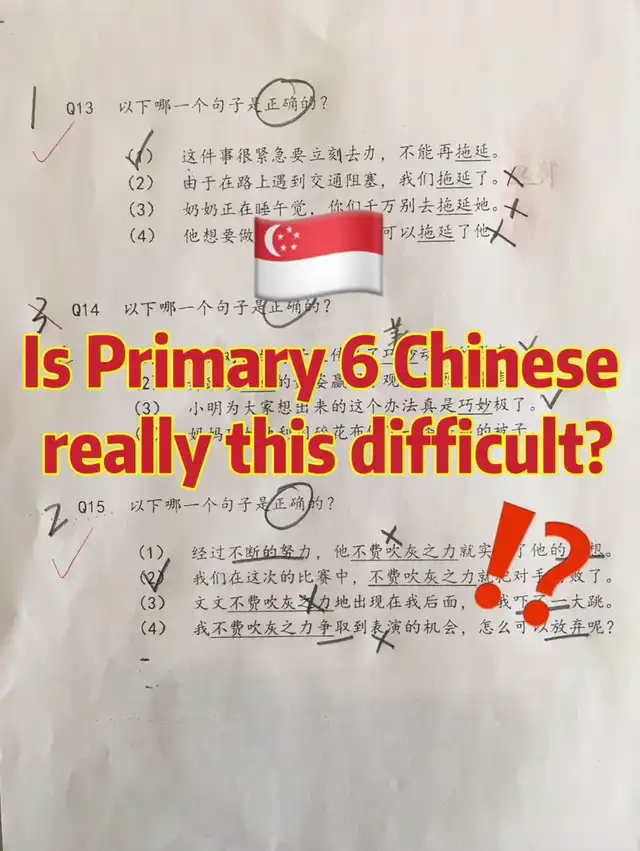 1 Q13 以下哪一个句子是正确的?
(1) 这件事很紧急要立刻去办,不能再拖延。
(2) 由于在路上遇到交通阻塞,我们拖延了。
(3) 奶奶正在睡午觉,你们千万别去拖延她。
(4) 他想要做 可以拖延了他
3 Q14 以下哪一个句子是正确的?
美
Is Primary 6 Chinese
(3) 小明为大家想出来的这个办法真是巧妙极了。
really this difficult?
2 Q15 以下哪一个句子是正确的?
(1) 经过不断的努力,他不费吹灰之力就实 了他的 想。
(2) 我们在这次的比赛中,不费吹灰之力就把对手 败了。
(3) 文文不费吹灰之力地出现在我后面, 我吓了一大跳。
(4) 我不费吹灰之力争取到表演的机会,怎么可以放弃呢?
⁉